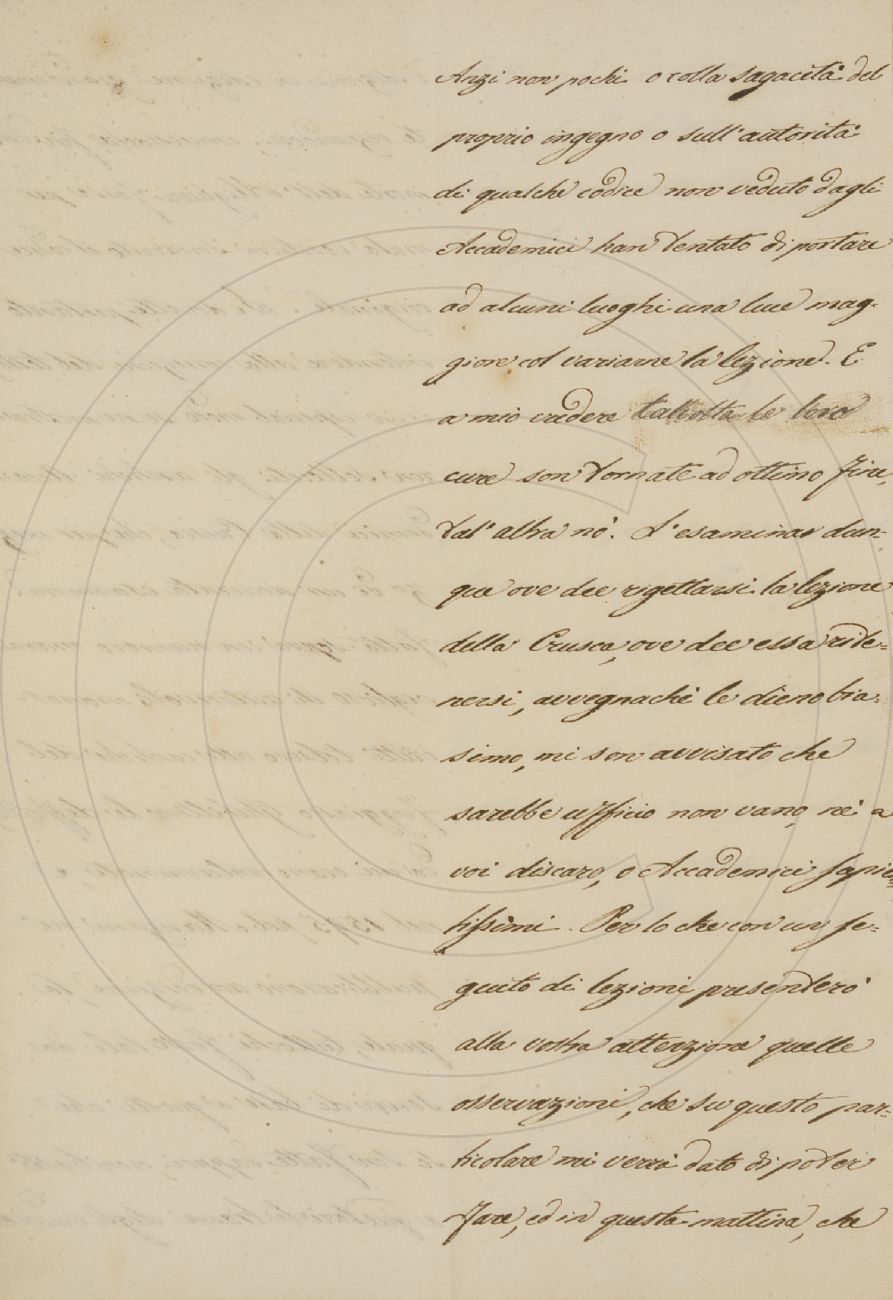 Anzi non pochi o colla sagacità del
proprio ingegno o sull'autorità
di qualche codice non veduto dagli
Accademici han tentato di portare
ad alcuni luoghi una luce mag-
giore col variarne la lezione. E
a mio credere talvolta le loro
cure son tornate ad ottimo fine,
tal'altra nò. L'esaminar dun-
que ove dee rigettarsi la lezione
della Crusca, ove dee essa rite-
nersi, avvegnachè le dieno bia-
simo, mi son avvisato che
sarebbe ufficio non vano, nè a
voi discaro, o Accademici sapien-
tissimi. Per lo che con un se-
guito di lezioni presenterò
alla vostra attenzione quelle
osservazioni, che su questo par-
ticolare mi verrà dato di poter
fare, ed in questa mattina, che